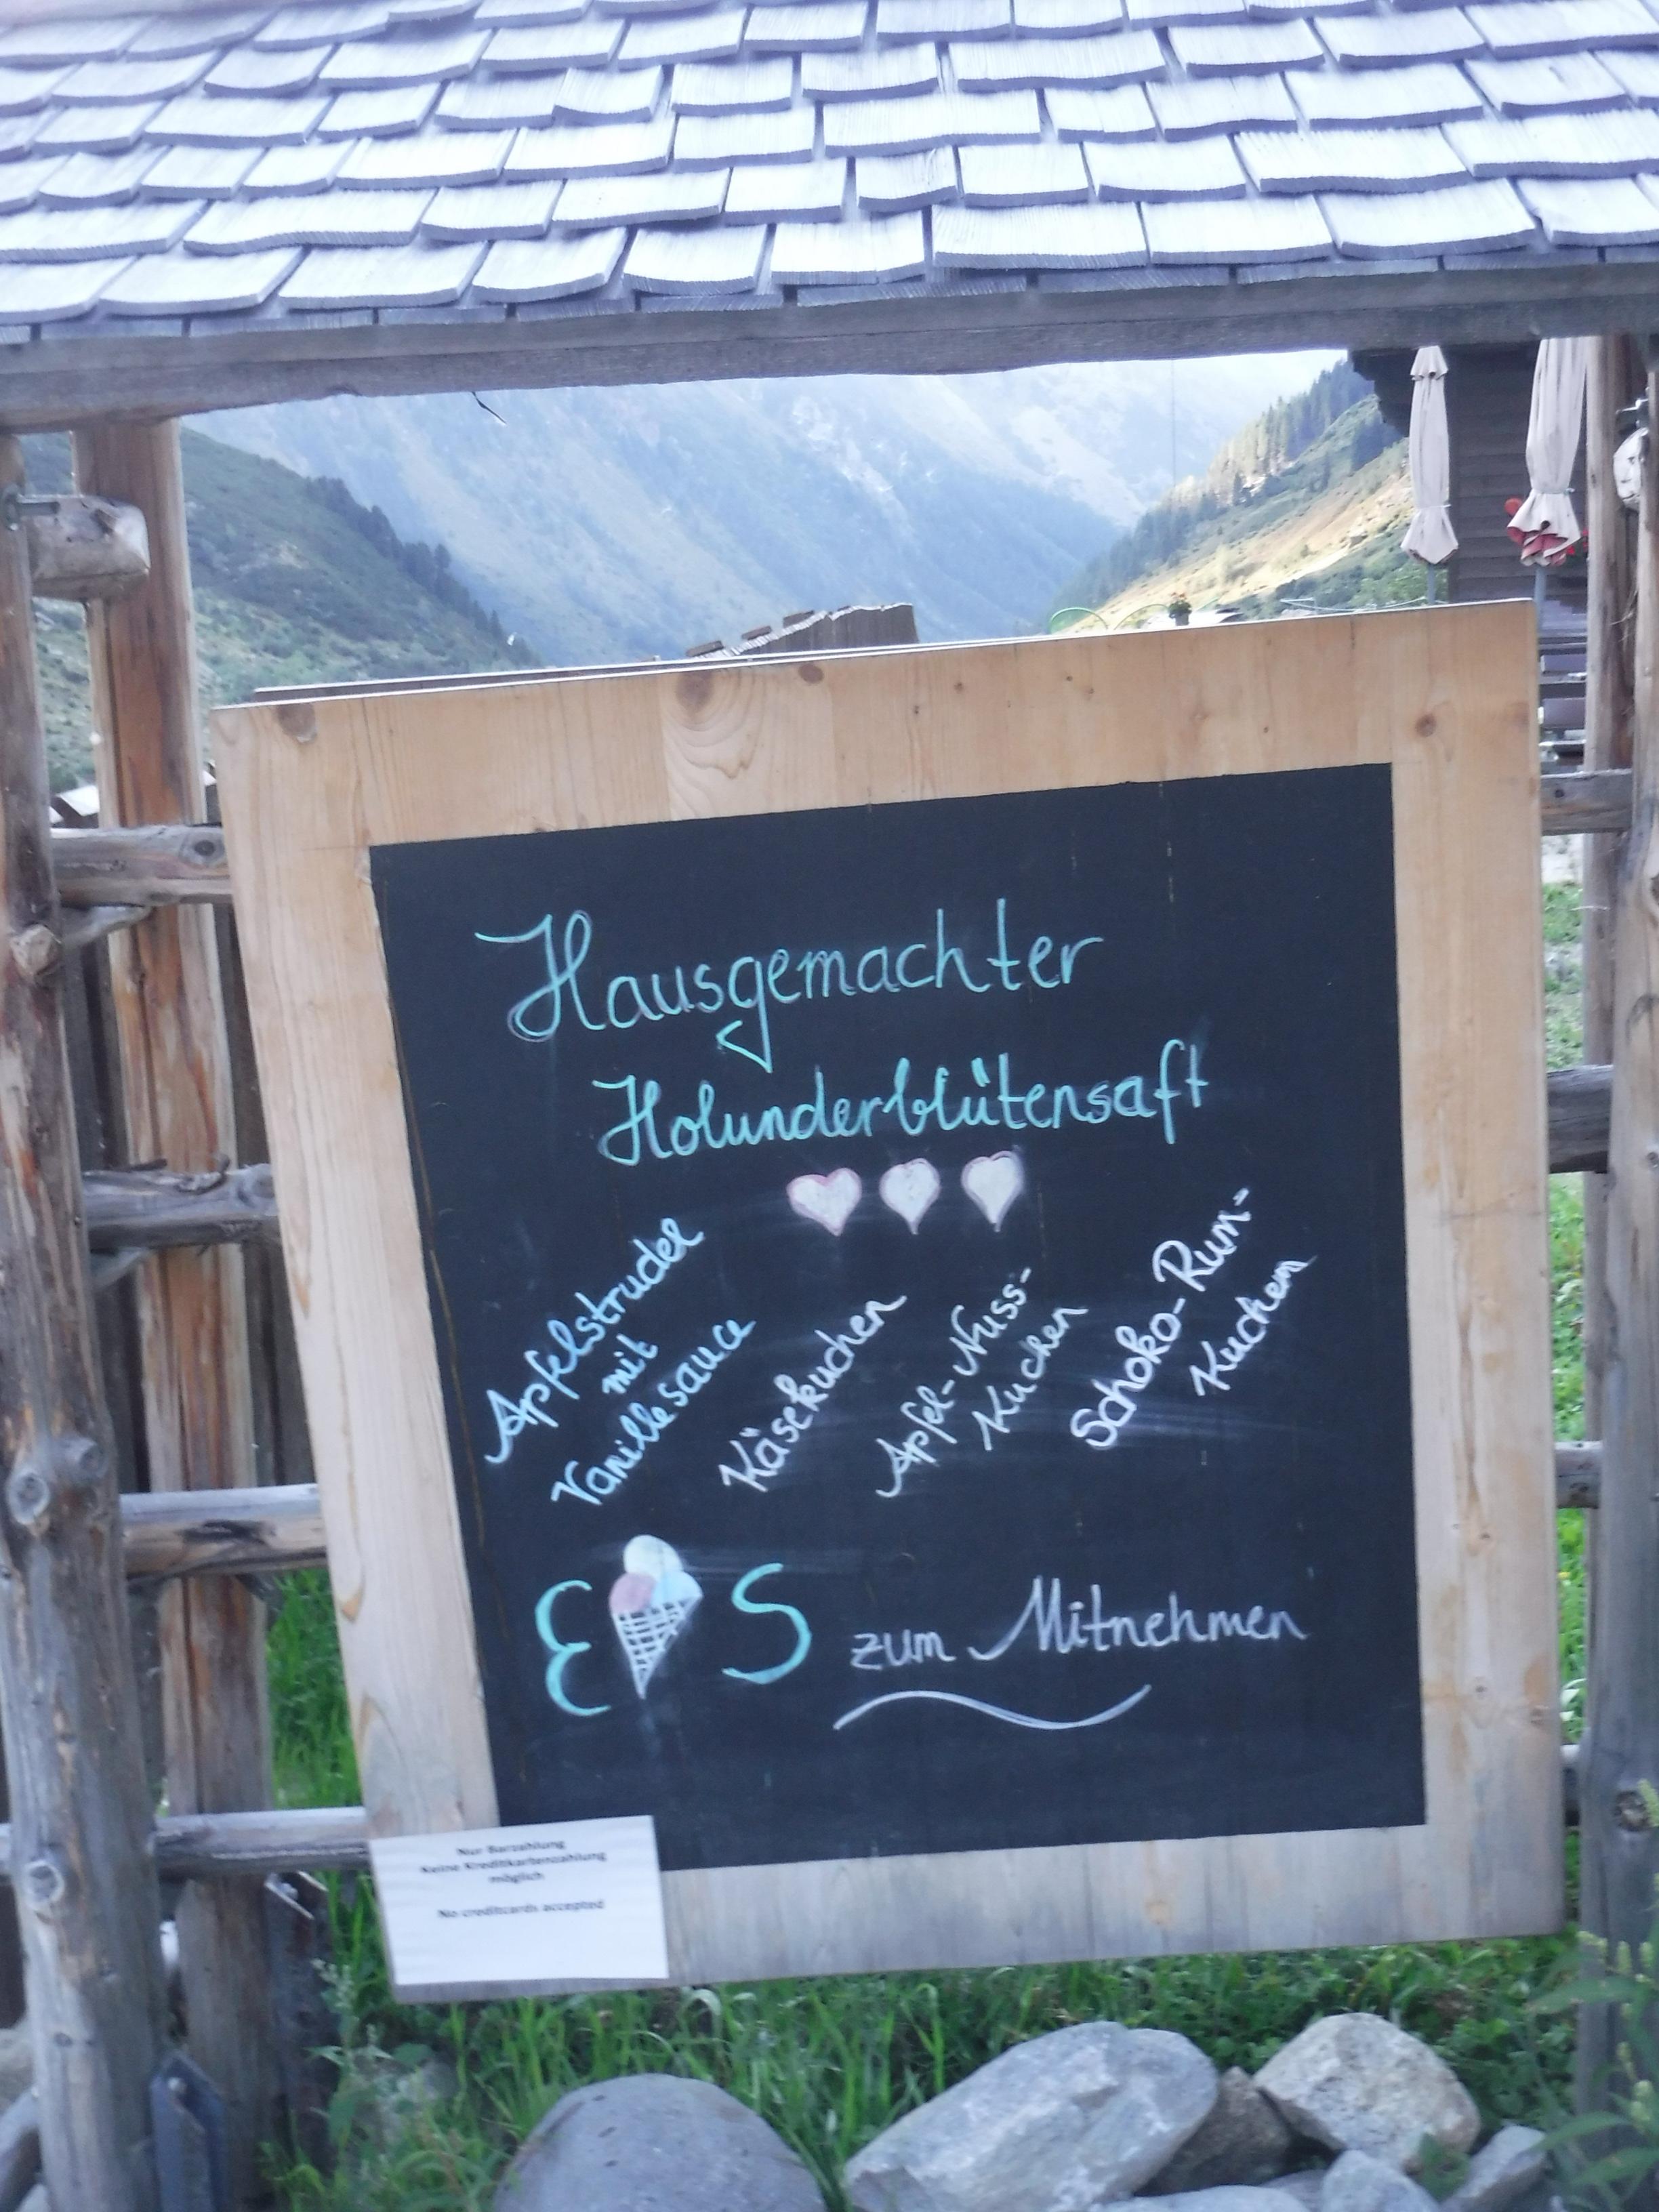 Hausgemachter
Holunderblütensaft
Apfelstrudel
mit
Vanillesauce
Käsekuchen
Apfel-Nuss-
Kuchen
Schoko-Rum-
Kuchen
EIS zum Mitnehmen
Nur Barzahlung
Keine Kreditkartenzahlung
möglich
No creditcards accepted